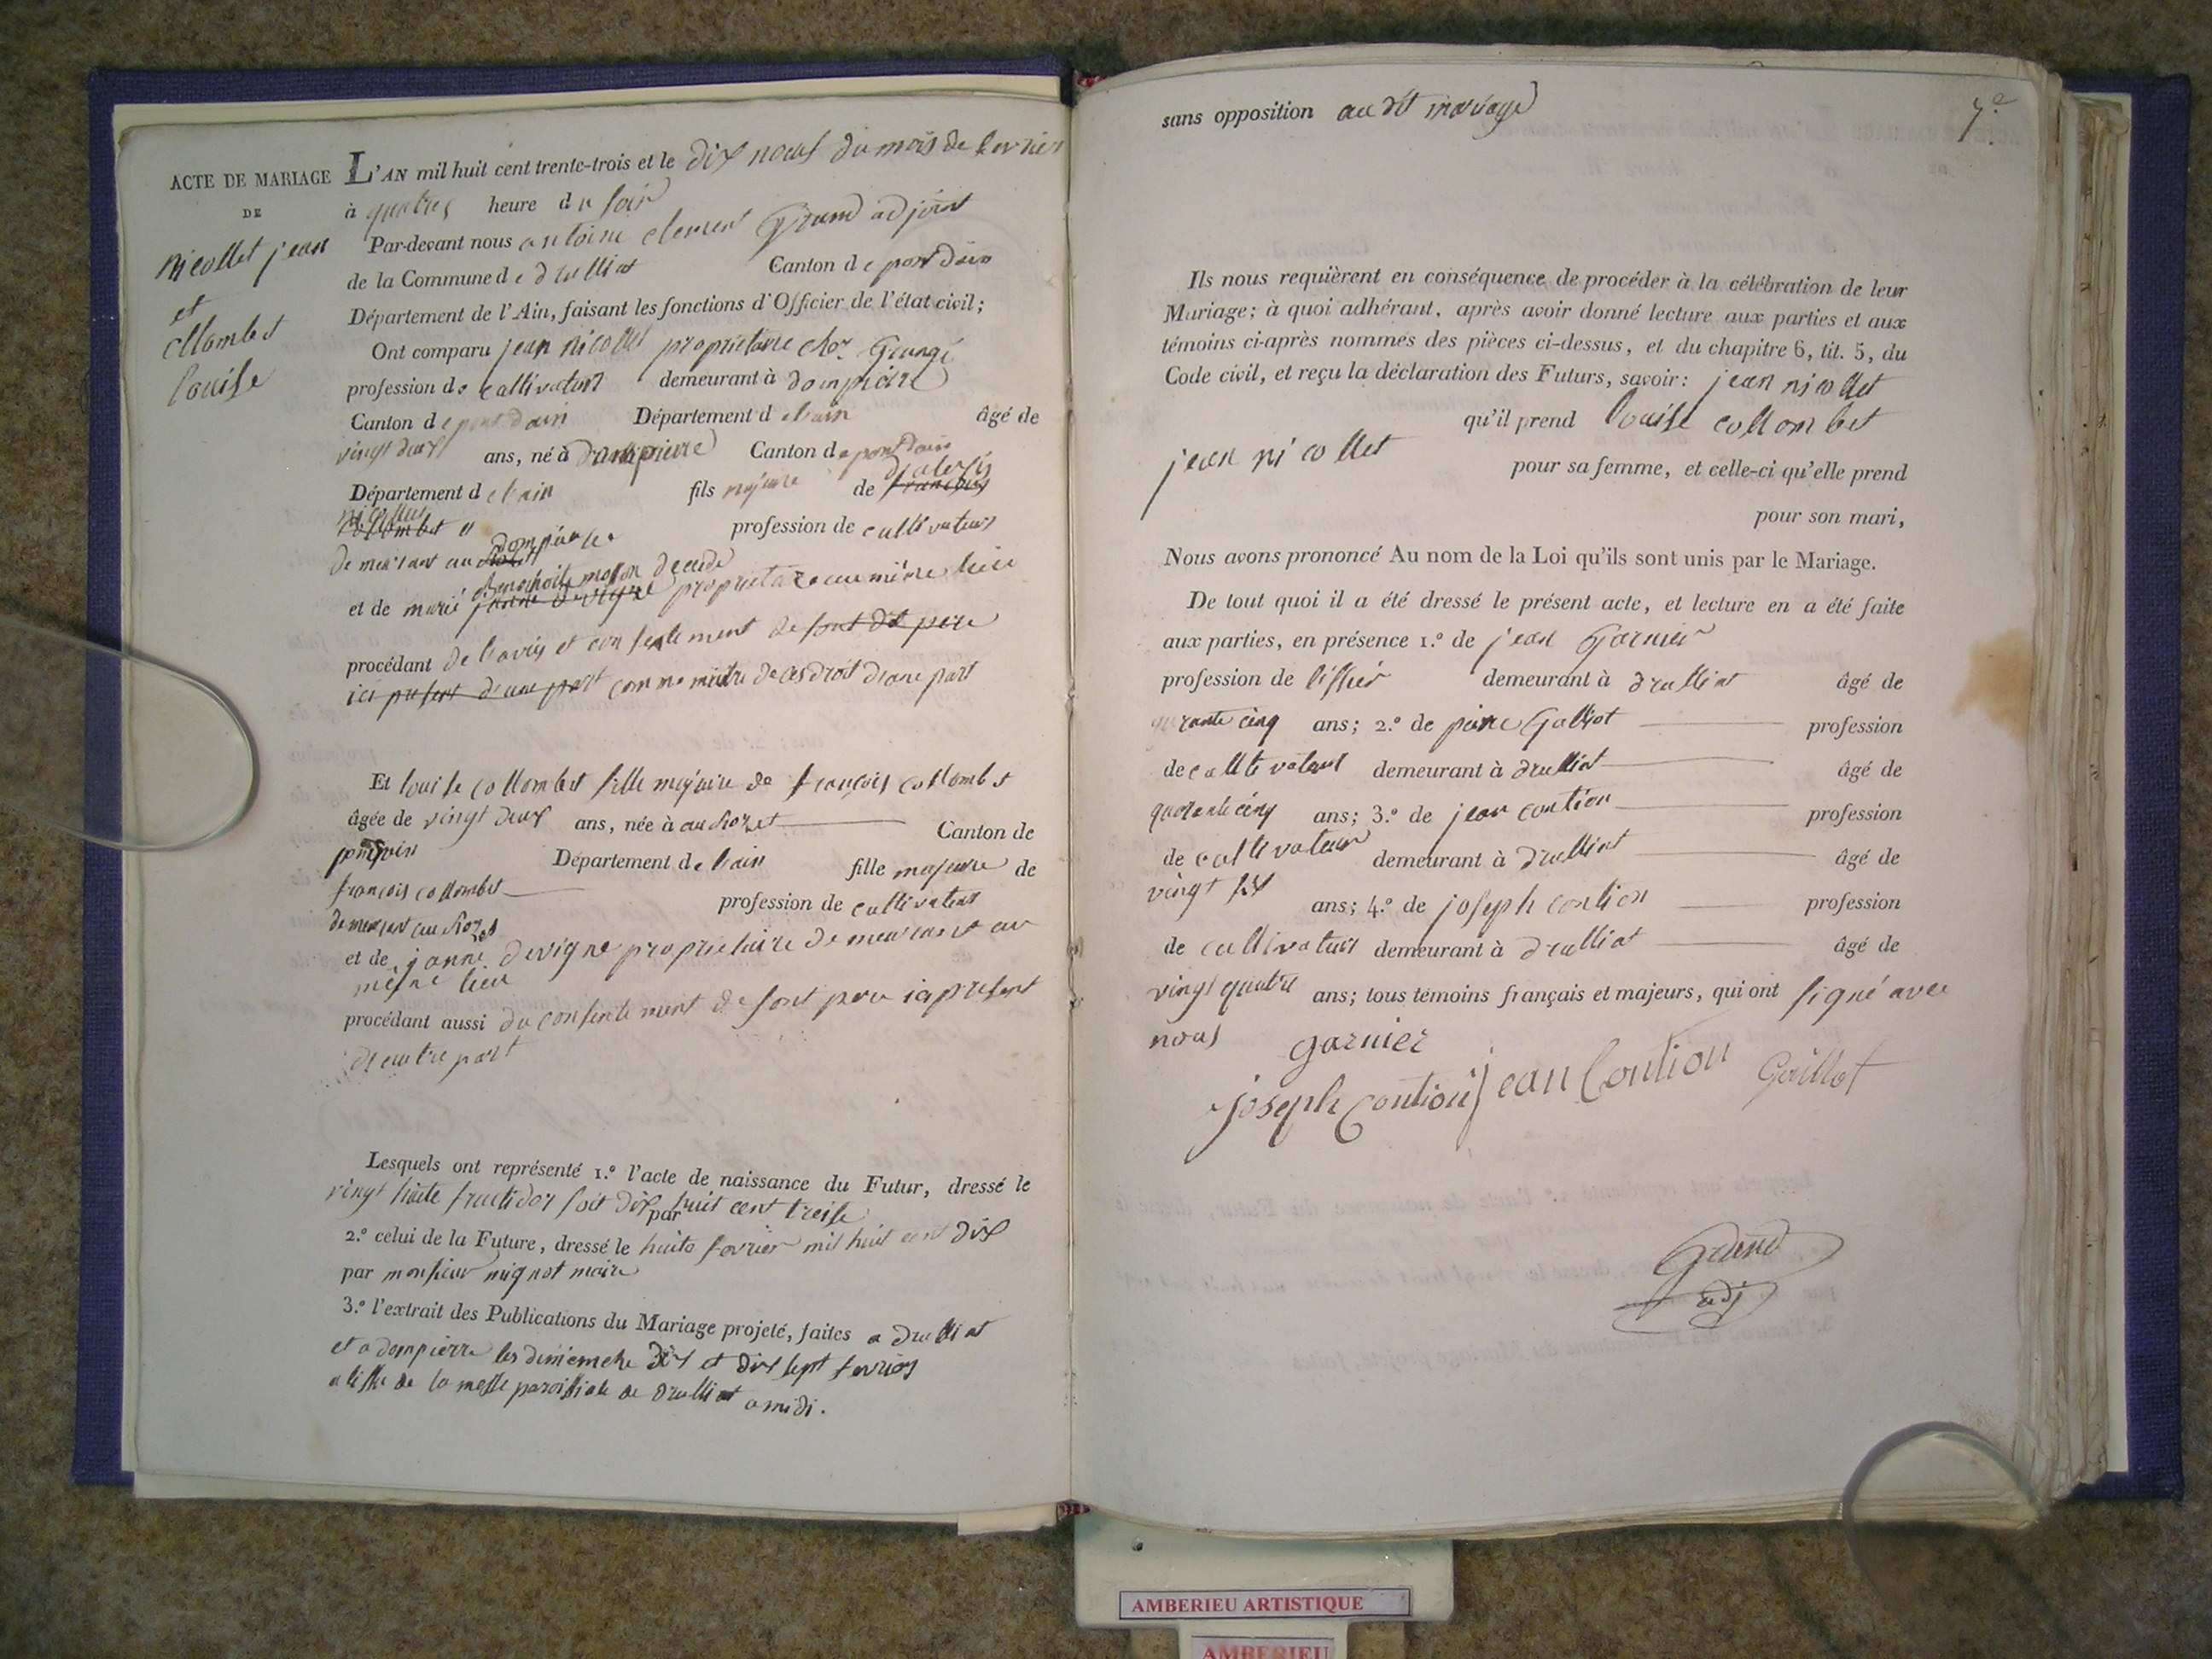 ACTE DE MARIAGE
DE
Nicollet jean
et
collombet
louise
L'AN mil huit cent trente-trois et le dix neuf du mois de fevrier
à quatres heure du soir
Par-devant nous antoine clement Grand adjoint
de la Commune de druilliat Canton de pontdain
Département de l'Ain, faisant les fonctions d'Officier de l'état civil;
Ont comparu jean nicollet propriétaire
profession de cultivateur demeurant à dompierre
Canton de pontdain Département de lain âgé de
vingt deux ans, né à dampierre Canton de pontdain
Département de lain fils majeure de francois
nicollet collombet profession de cultivateur
demeurant au dompierre
et de marie jeanne devigne decede propriétaire au même lieu
procédant de l'avis et consentement de sont dit pere
ici present d'une part comme maitre de ces droit d'une part
Et louise collombet fille majeure de francois collombet
âgée de vingt deux ans, née à au Rozet Canton de
pontdain Département de lain fille majeure de
francois collombet profession de cultivateur
demeurant au Rozet
et de janne devigne propriétaire demeurant au
même lieu
procédant aussi du consentement de sont pere ici present
d'autre part
Lesquels ont représenté 1.º l'acte de naissance du Futur, dressé le
vingt huite fructidor soit dix huit cent treise
par
2.º celui de la Future, dressé le huite fevrier mil huit cent dix
par monsieur mignot maire
3.º l'extrait des Publications du Mariage projeté, faites a druilliat
et a dompierre les dimemche dix et dix sept fevrier
a lissue de la messe paroissiale de druilliat a midi.
7.e
sans opposition au dit mariage
Ils nous requièrent en conséquence de procéder à la célébration de leur
Mariage; à quoi adhérant, après avoir donné lecture aux parties et aux
témoins ci-après nommés des pièces ci-dessus, et du chapitre 6, tit. 5, du
Code civil, et reçu la déclaration des Futurs, savoir: jean nicollet
qu'il prend louise collombet
pour sa femme, et celle-ci qu'elle prend
jean nicollet
pour son mari,
Nous avons prononcé Au nom de la Loi qu'ils sont unis par le Mariage.
De tout quoi il a été dressé le présent acte, et lecture en a été faite
aux parties, en présence 1.º de jean Garnier
profession de tissier demeurant à druilliat âgé de
quarante cinq ans; 2.º de pierre Galliot profession
de cultivateur demeurant à druilliat âgé de
quarante cinq ans; 3.º de jean coution profession
de cultivateur demeurant à druilliat âgé de
vingt six ans; 4.º de joseph coution profession
de cultivateur demeurant à druilliat âgé de
vingt quatre ans; tous témoins français et majeurs, qui ont signé avec
nous
garnier
joseph coution jean Coution Gaillot
Grand
adj
AMBERIEU ARTISTIQUE
AMBERIEU